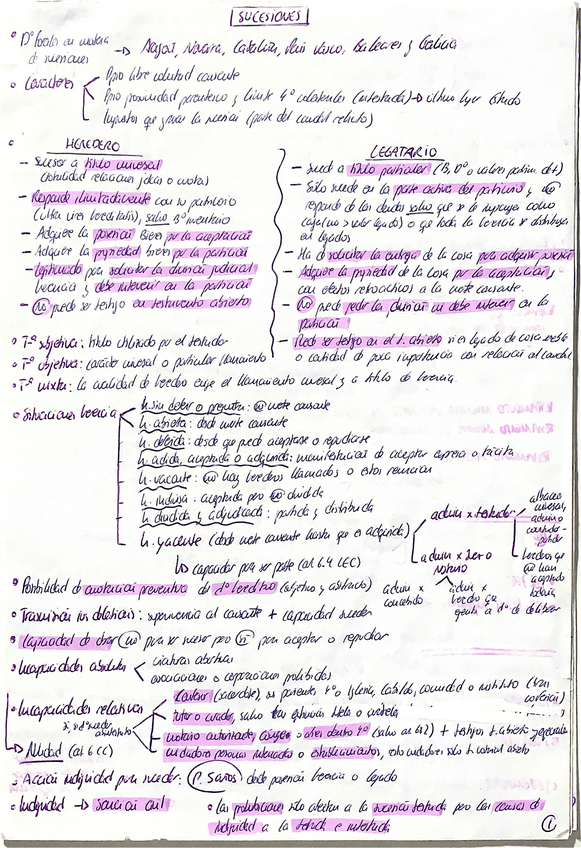 SUCESIONES
• Dº foral en materia de sucesiones → Aragón, Navarra, Cataluña, País Vasco, Baleares y Galicia
• Caracteres
Ppio libre voluntad causante
Ppio proximidad parentesco y límite 4º colaterales (intestada) → último lugar Estado
Impuestos que gravan la sucesión (parte del caudal relicto)
HEREDERO
- Sucesor a título universal
(totalidad relaciones jdcas o cuota)
- Responde ilimitadamente con su patrimonio
(ultra vires hereditatis), salvo Bº inventario
- Adquiere la posesión bienes por la aceptación
- Adquiere la propiedad bienes por la partición
- Legitimado para solicitar la división judicial
herencia y debe intervenir en la partición
- no puede ser testigo en testamento abierto
LEGATARIO
- Sucede a título particular (B, Dº o valores patrim. det)
- Sólo sucede en la parte activa del patrimonio y no
responde de las deudas salvo que se le imponga como
carga o que toda la herencia se distribuya
en legados
- Ha de solicitar la entrega de la cosa para adquirir posesión
- Adquiere la propiedad de la cosa por la aceptación y
con efectos retroactivos a la muerte causante.
- no puede pedir la división ni debe intervenir en la
partición
- Puede ser testigo en el t. abierto si el legado de cosa mueble
o cantidad de poca importancia con relación al caudal
• Tª subjetiva: título utilizado por el testador
• Tª objetiva: carácter universal o particular llamamiento
• Tª mixta: la cualidad de heredero exige el llamamiento universal y a título de herencia.
• Situaciones herencia
h. sin deferir o presunta: no muerte causante
h. abierta: desde muerte causante
h. deferida: desde que puede aceptarse o repudiarse
h. adida, aceptada o adquirida: manifestación de aceptar expresa o tácita
h. vacante: no hay herederos llamados o estos renuncian
h. indivisa: aceptada pero no dividida
h. dividida y adjudicada: partida y distribuida
h. yacente (desde muerte causante hasta que es adquirida)
admin x testador
albacea universal,
herederos que
no han
aceptado
todavía
admin x
admin x
heredero que
ejercita dº de deliberar
↳ capacidad para ser parte (art 6.4 LEC)
• Posibilidad de anotación preventiva de dº hereditario
• Transmisión ius delationis: supervivencia al causante + capacidad suceder
• Capacidad de obrar no para ser sucesor pero sí para aceptar o repudiar
• Incapacidades absolutas
criaturas abortivas
asociaciones o corporaciones prohibidas
• Incapacidades relativas
confesor (sacerdote), sus parientes 4º o Iglesia, Cabildo, comunidad o instituto
tutor o curador, salvo
notario autorizante, cónyuge o afines dentro 4º (salvo art 682) + testigos t. abierto
cuidadores personas internadas o establecimientos,
→ Nulidad (art 6 CC)
• Acción indignidad para suceder: P. 5 años desde posesión herencia o legado
• Indignidad → sanción civil
• Las prohibiciones sólo afectan a la sucesión testada pero las causas de
indignidad a la testada e intestada
1